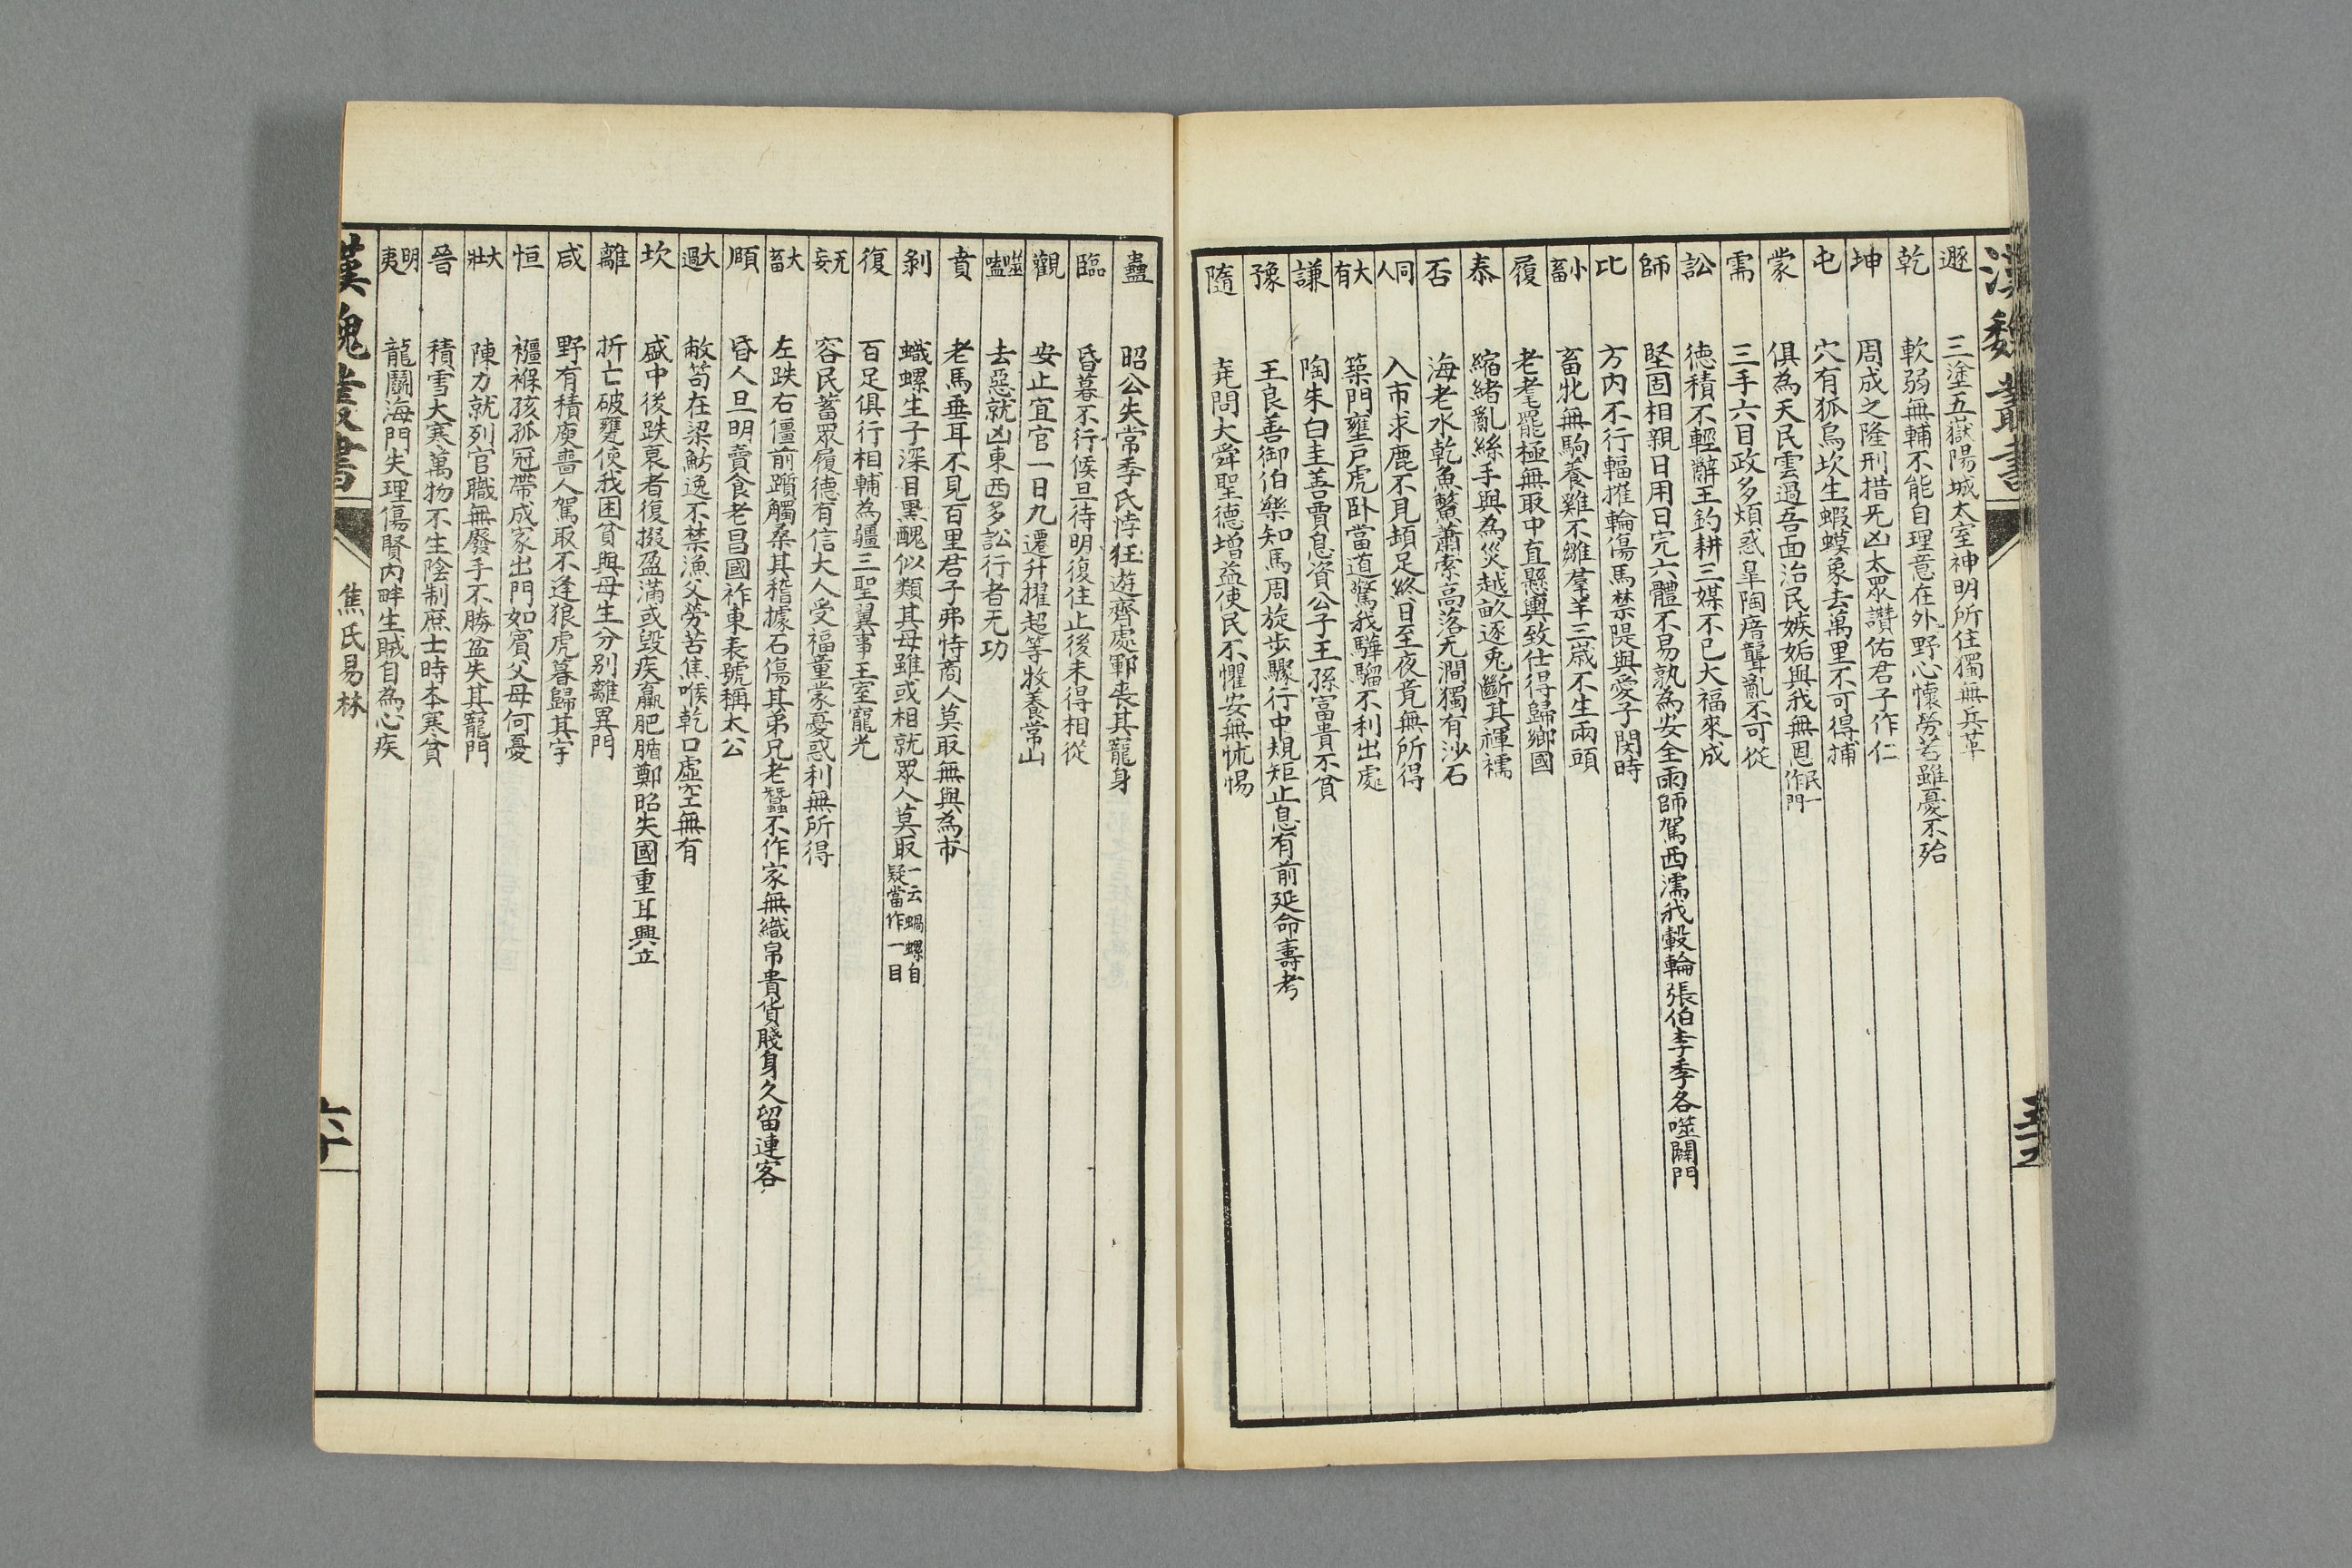 漢魏叢書
遯 三塗五嶽陽城太室神明所住獨無兵革
乾 軟弱無輔不能自理意在外野心懷勞苦雖憂不殆
坤 周成之隆刑措旡凶太眾讚佑君子作仁
屯 穴有狐烏坎生蝦蟆象去萬里不可得捕
蒙 俱為天民雲過吾面治民嫉妬與我無恩民一作門
需 三手六目政多煩惑皐陶瘖聾亂不可從
訟 德積不輕辭王釣耕三媒不已大福來成
師 堅固相親日用日完六體不易孰為安全雨師駕西濡我轂輪張伯李季各噬闢門
比 方內不行輻摧輪傷馬禁隄與愛子閔時
小畜 畜牝無駒養雞不雛羣羊三歲不生兩頭
履 老耄罷極無取中直懸輿致仕得歸鄉國
泰 縮緒亂絲手與為災越畝逐兎斷其襌襦
否 海老水乾魚鱉蕭索高落无澗獨有沙石
同人 入市求鹿不見頭足終日至夜竟無所得
大有 築門壅戶虎卧當道驚我驊騮不利出處
謙 陶朱白圭善賈息資公子王孫富貴不貧
豫 王良善御伯樂知馬周旋步驟行中規矩止息有前延命壽考
隨 堯問大舜聖德增益使民不懼安無怵惕
蠱 昭公失常季氏悖狂遊齊處鄆丧其寵身
臨 昏暮不行候旦待明復住止後未得相從
觀 安止宜官一日九遷升擢超等牧養常山
噬嗑 去惡就凶東西多訟行者无功
賁 老馬垂耳不見百里君子弗恃商人莫取無與為市
剝 蟙螺生子深目黑醜似類其母雖或相就眾人莫取一云蝸螺自疑當作一目
復 百足俱行相輔為疆三聖翼事王室寵光
无妄 容民蓄眾履德有信大人受福童蒙憂惑利無所得
大畜 左跌右僵前躓觸桑其稽據石傷其弟兄老蠶不作家無織帛貴貨賤身久留連客
頤 昏人旦明賣食老昌國祚東表號稱太公
大過 敝笱在梁魴逸不禁漁父勞苦焦喉乾口虛空無有
坎 盛中後跌衰者復掇盈滿或毀疾羸肥腯鄭昭失國重耳興立
離 折亡破甕使我困貧與母生分別離異門
咸 野有積庾嗇人駕取不逢狼虎暮歸其宇
恒 襁褓孩孤冠帶成家出門如賓父母何憂
大壯 陳力就列官職無廢手不勝盆失其寵門
晉 積雪大寒萬物不生陰制庶士時本寒貧
明夷 龍鬬海門失理傷賢內畔生賊自為心疾
漢魏叢書 焦氏易林 六十